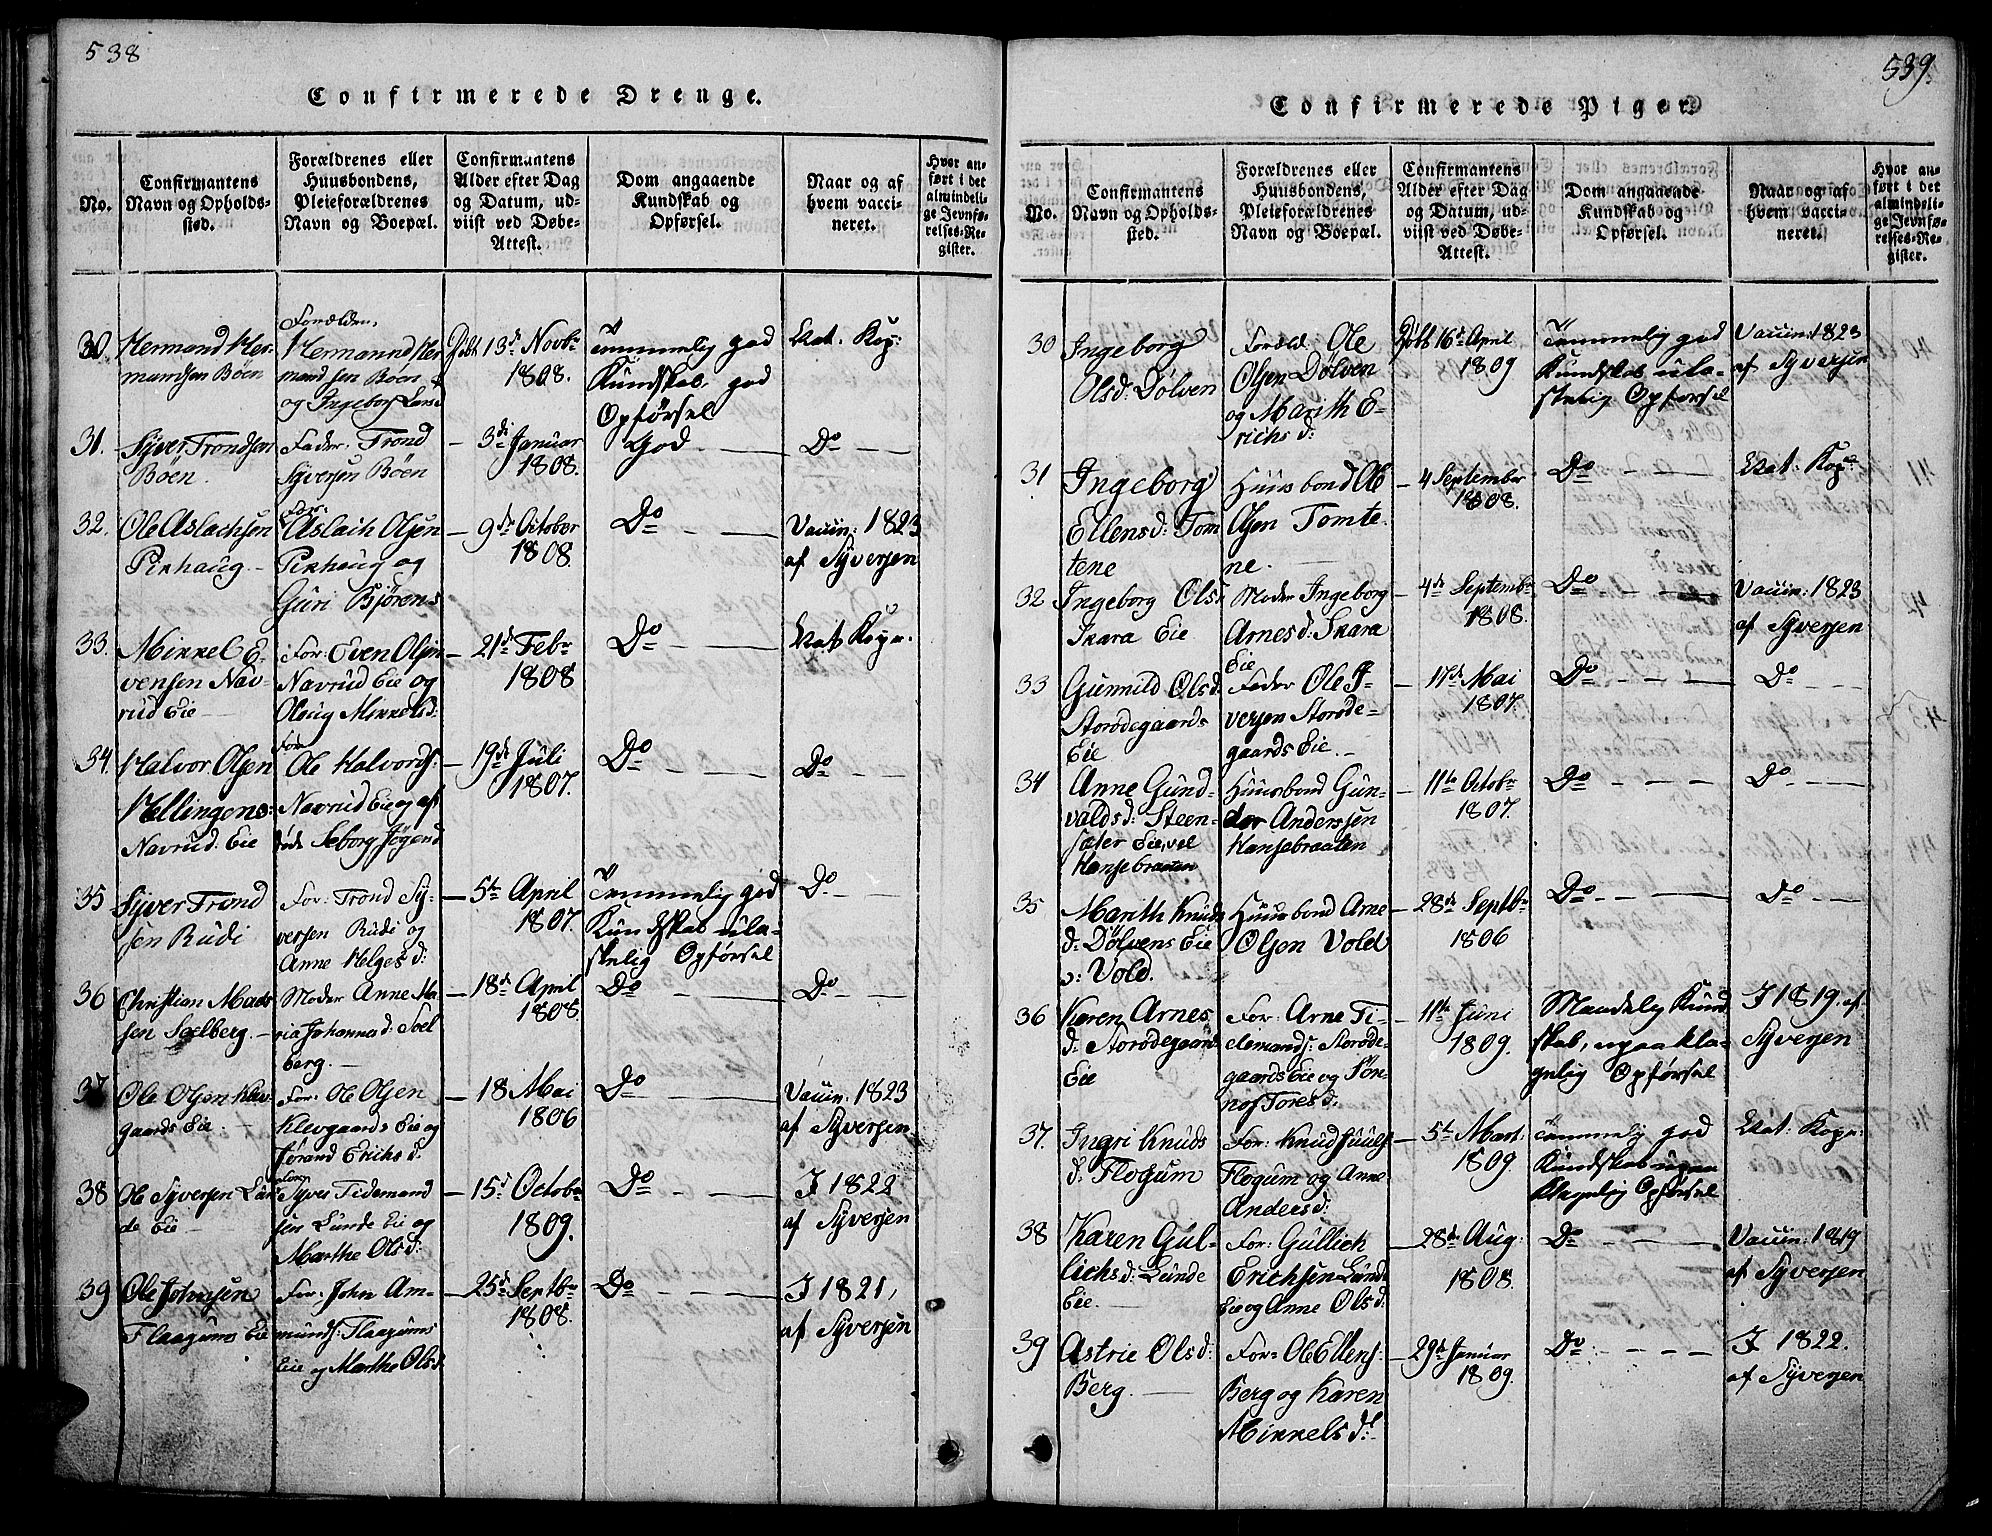 538
Confirmerede Drenge.
No.
Confirmantens
Navn og Opholds-
sted.
Forældrenes eller
Huusbondens,
Pleieforældrenes
Navn og Boepæl.
Confirmantens
Alder efter Dag
og Datum, ud-
viist ved Døbe-
Attest.
Dom angaaende
Kundskab og
Opførsel.
Naar og af
hvem vacci-
neret.
Hvor an-
ført i det
almindeli-
ge Jevnfø-
relses-Re-
gister.
30.
Hermand Her-
mandsen Böen
Forældre,
Hermannd Her
mandsen Böen
og Ingeborg Larsd
Döbt 13de Novbr
1808.
Temmelig god
Kundskab, god
Opførsel
Nat. Kop:
31.
Syver Trondsen
Böen.
Fader: Trond
Syversen Böen
3de Januar
1808.
God
Do
32.
Ole Aslachsen
Pirhaug.
For:
Aslach Olsen
Pirhaug og
Guri Bjørens
9de October
1808.
Do
Vaccin: 1823
af Syversen
33.
Mikkel E-
vensen Nav-
rud Eie
For: Even Olsen
Navrud Eie og
Oloug Mikkelsd:
21de Febr
1808
Do
Nat Kopr.
34.
Halvor Olsen
Hellingens:
Navrud: Eie
For
Ole Halvords:
Navrud Eie og af
døde Seborg Jøgend
19de Juli
1807.
Do
Do
35
Syver Trond
sen Rudi
For: Trond Sy-
versen Rudi og
Anne Helgesd:
5te April
1807.
Temmelig god
Kundskab ula-
stelig Opførsel
Do
36
Christian Mads
sen Soelberg
Moder Anne Ma
ria Johannad: Soel
berg.
18de April
1808.
Do
Do
37
Ole Olsen Klev-
gaards Eie.
For: Ole Olsen
Klevgaards Eie og
Jørand Erichsd.
18 Mai
1806
Do
Vaccin: 1823
af Syversen
38
Ole Syversen Lun
de Eie
For:
Syver Tidemand
sen Lunde Eie og
Marthe Olsd:
15de Octobr
1809.
Do
I 1822
af Syversen
39
Ole Johnsen
Flaagums Eie
For: John Am-
munds: Flaagums
Eie og Marthe Olsd
25de Septbr
1808.
Do
I 1821,
af Syversen
539.
Confirmerede Piger.
No.
Confirmantens
Navn og Opholds-
sted.
Forældrenes eller
Huusbondens,
Pleieforældrenes
Navn og Boepæl.
Confirmantens
Alder efter Dag
og Datum, ud-
viist ved Døbe-
Attest.
Dom angaaende
Kundskab og
Opførsel.
Naar og af
hvem vacci-
neret.
Hvor an-
ført i det
almindeli-
ge Jevnfø-
relses-Re-
gister.
30
Ingeborg
Olsd: Dölven
Foræld. Ole
Olsen Dölven
og Marith E-
richsd:
Döbt 16de April
1809
Temmelig god
Kundskab ula-
stelig Opførsel
Vaccin: 1823
af Syversen
31
Ingeborg
Ellensd: Tom
tene
Huusbond Ole
Olsen Tomte-
ne.
4 September
1808.
Do
Nat: Kopr.
32
Ingeborg Olsd
Skara Eie
Moder Ingeborg
Arnesd: Skara
Eie
4de Septembr
1808.
Do
Vaccin: 1823
af Syversen
33
Gunnild Olsd.
Storödegaards
Eie
Fader Ole I-
versen Storöde-
gaards Eie.
17de Mai
1807.
Do
Do
34
Anne Gund-
valdsd: Steen-
sæter Eie, vel
Hansebraaten
Huusbond Gun-
der Anderssen
Hansebraaten
11te Octobr
1807.
Do
Do
35
Marith Knuds
d: Dölvens Eie
v: Vold.
Huusbond Arne
Olsen Vold
28de Septbr
1806
Do
Do
36
Karen Arnes
d: Storödegaards
Eie
For: Arne Ti-
demands: Storöde-
gaards Eie og Rön-
nof Toresd.
11te Juni
1809.
Maadelig Kund
skab, upaakla-
gelig Opførsel
I 1819. af
Syversen
37.
Ingri Knuds
d. Flogum
For: Knud Juuls
Flogum og Anne
Andersd:
5te Mart:
1809.
Temmelig god
Kundskab upaa
klagelig Opførsel
Nat: Kopr:
38
Karen Gul-
lichsd: Lunde
Eie.
For: Gullich
Erichsen Lunde
Eie og Anne Olsd:
28de Aug:
1808.
Do
Vaccin: 1819
af Syversen
39
Astrie Olsd:
Berg.
For: Ole Ellens:
Berg og Karen
Mikkelsd:
29de Januar
1809.
Do
I 1822.
af Syversen